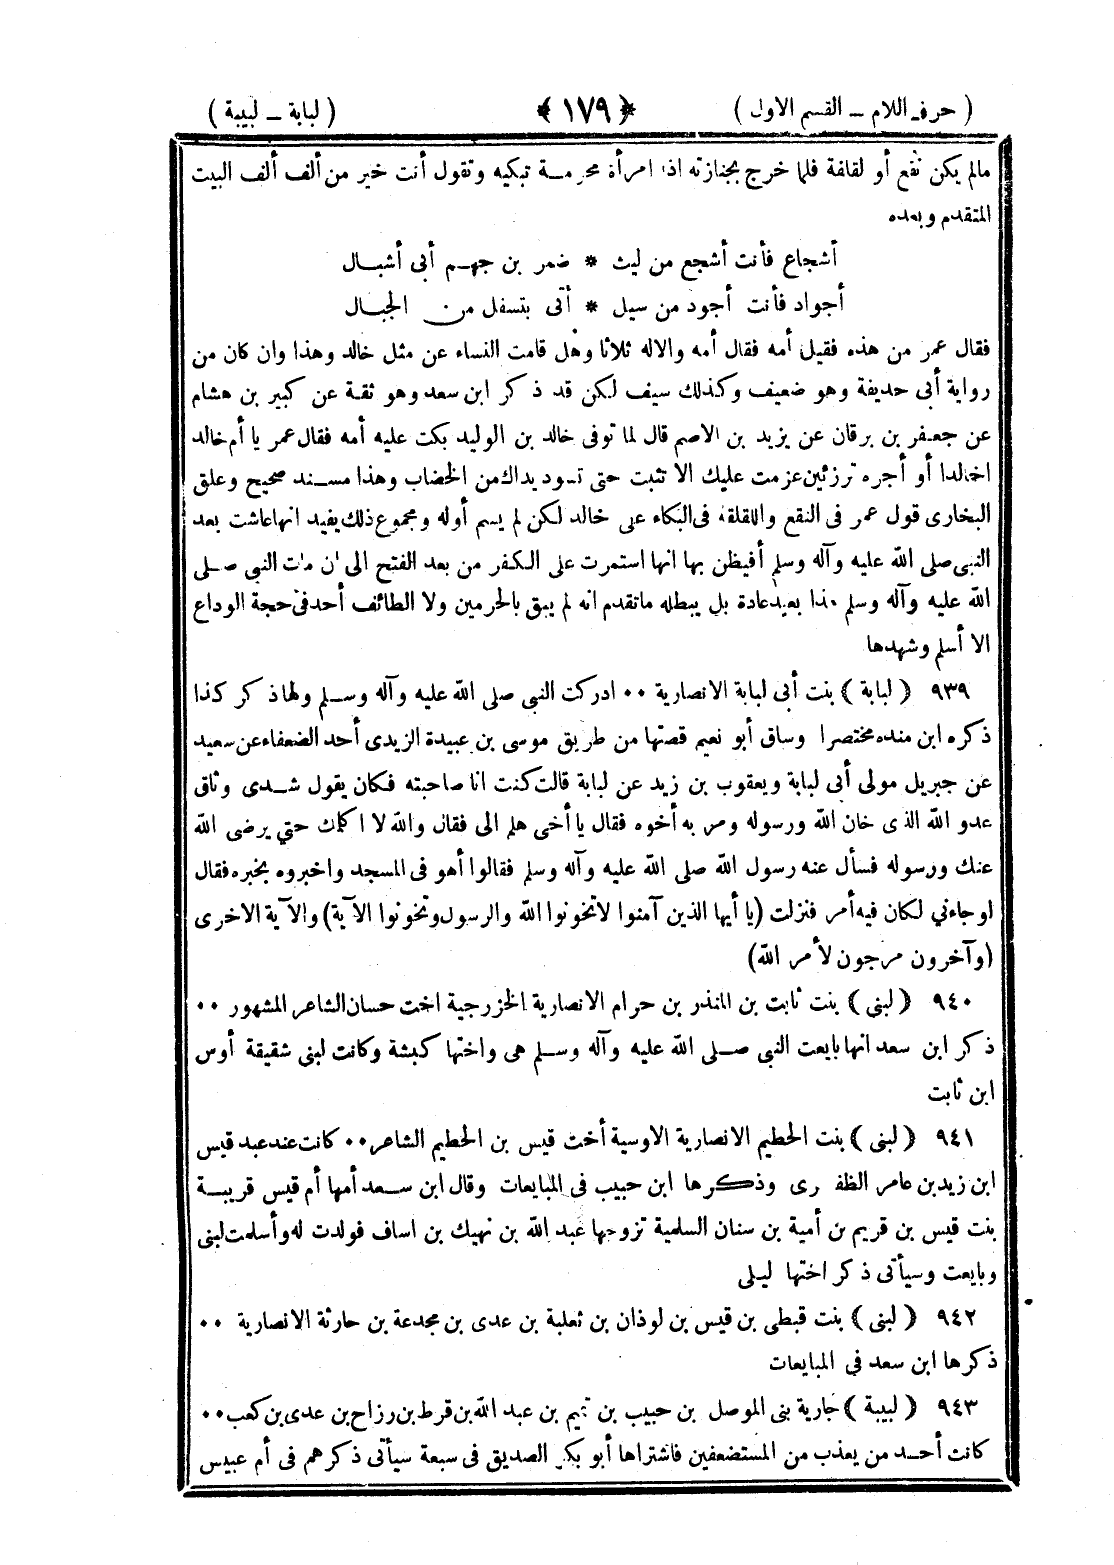 ( حرف اللام – القسم الاول ) ﴿ ١٧٩ ﴾ ( لبابة – لبيبة )
مالم يكن نقع أو لقافة فلما خرج بجنازته اذا امرأة محرمة تبكيه وتقول أنت خير من ألف ألف البيت
المتقدم وبعده
أشجاع فأنت أشجع من ليث * ضمر بن جهم أبى أشبال
أجواد فأنت أجود من سيل * أتى يتسفل من الجبال
فقال عمر من هذه فقيل أمه فقال أمه والاله ثلاثا وهل قامت النساء عن مثل خالد وهذا وان كان من
رواية أبى حديفة وهو ضعيف وكذلك سيف لكن قد ذكر ابن سعد وهو ثقة عن كبير بن هشام
عن جعفر بن برقان عن يزيد بن الاصم قال لما توفى خالد بن الوليد بكت عليه أمه فقال عمر يا أم خالد
اخالدا أو أجره ترزئين عزمت عليك الا تثبت حتى تسود يداك من الخضاب وهذا مسند صحيح وعلق
البخارى قول عمر فى النقع واللقلقة فى البكاء على خالد لكن لم يسم أوله ومجموع ذلك يفيد انها عاشت بعد
النبى صلى الله عليه وآله وسلم أفيظن بها انها استمرت على الكفر من بعد الفتح الى ان مات النبى صلى
الله عليه وآله وسلم هذا بعيد عادة بل يبطله ماتقدم انه لم يبق بالحرمين ولا الطائف أحد فى حجة الوداع
الا أسلم وشهدها
٩٣٩ ( لبابة ) بنت أبى لبابة الانصارية ٠٠ ادركت النبى صلى الله عليه وآله وسلم ولها ذكر كذا
ذكره ابن منده مختصرا وساق أبو نعيم قصتها من طريق موسى بن عبيدة الزيدى أحد الضعفاء عن سعيد
عن جبريل مولى أبى لبابة ويعقوب بن زيد عن لبابة قالت كنت انا صاحبته فكان يقول شدى وثاق
عدو الله الذى خان الله ورسوله ومر به أخوه فقال يا أخى هلم الى فقال والله لا اكلمك حتي يرضى الله
عنك ورسوله فسأل عنه رسول الله صلى الله عليه وآله وسلم فقالوا أهو فى المسجد واخبروه بخبره فقال
اوجاءني لكان فيه أمر فنزلت (يا أيها الذين آمنوا لاتخونوا الله والرسول وتخونوا الآية) والآية الاخرى
(وآخرون مرجون لأمر الله)
٩٤٠ ( لبنى ) بنت ثابت بن المنذر بن حرام الانصارية الخزرجية اخت حسان الشاعر المشهور ٠٠
ذكر ابن سعد انها بايعت النبى صلى الله عليه وآله وسلم هى واختها كبشة وكانت لبنى شقيقة أوس
ابن ثابت
٩٤١ ( لبنى ) بنت الخطيم الانصارية الاوسية أخت قيس بن الخطيم الشاعر ٠٠ كانت عند عبد قيس
ابن زيد بن عامر الظفرى وذكرها ابن حبيب في المبايعات وقال ابن سعد أمها أم قيس قريبة
بنت قيس بن قريم بن أمية بن سنان السلمية تزوجها عبد الله بن نهيك بن اساف فولدت له وأسلمت لبنى
وبايعت وسيأتى ذكر اختها ليلى
٩٤٢ ( لبنى ) بنت قبطى بن قيس بن لوذان بن ثعلبة بن عدى بن مجدعة بن حارثة الانصارية ٠٠
ذكرها ابن سعد في المبايعات
٩٤٣ ( لبيبة ) جارية بنى الموصل بن حبيب بن تميم بن عبد الله بن قرط بن رزاح بن عدى بن كعب ٠٠
كانت أحد من يعذب من المستضعفين فاشتراها أبو بكر الصديق فى سبعة سيأتى ذكرهم فى أم عبيس